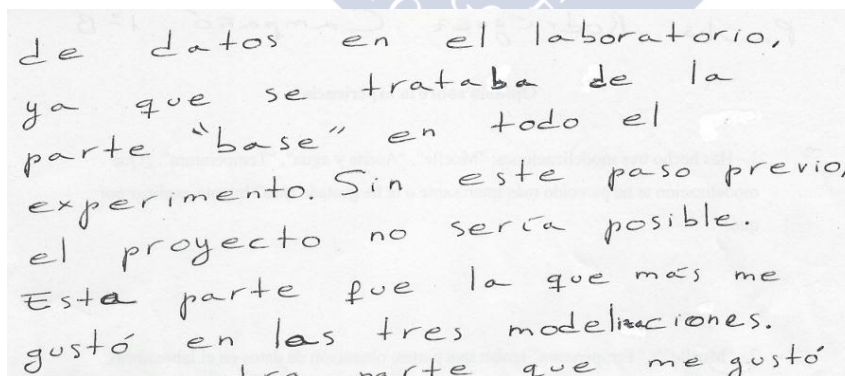 de datos en el laboratorio,
ya que se trataba de la
parte "base" en todo el
experimento. Sin este paso previo,
el proyecto no sería posible.
Esta parte fue la que más me
gustó en las tres modelizaciones.
parte que me gustó